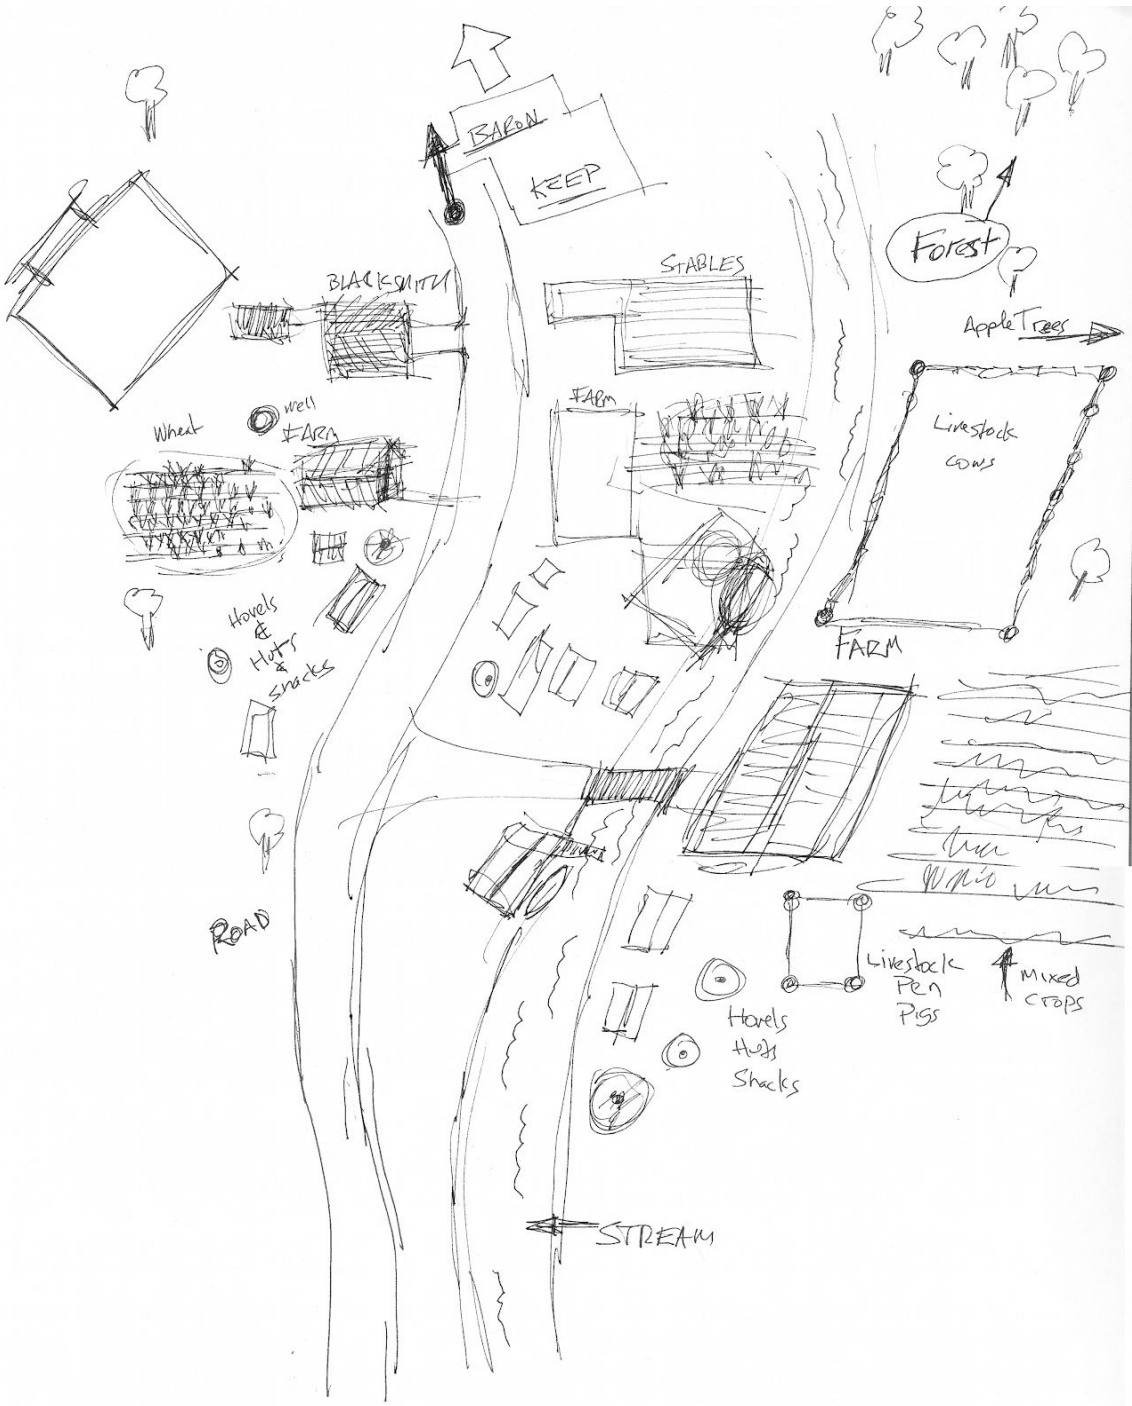 BARON
KEEP
Forest
STABLES
BLACKSMITH
Apple Trees
FARM
well
FARM
Wheat
Livestock
cows
Hovels
&
Huts
&
shacks
FARM
ROAD
Livestock
Pen
Pigs
Mixed
crops
Hovels
Huts
Shacks
STREAM